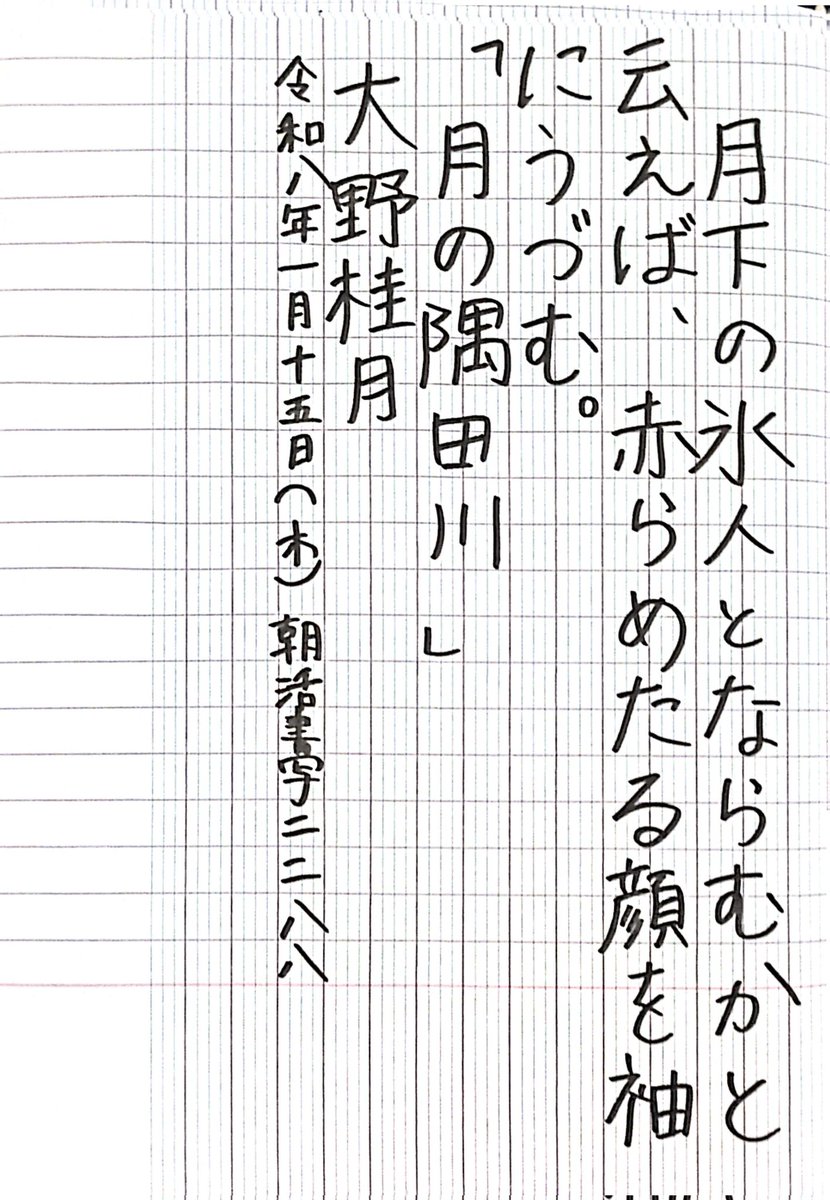 月下の氷人とならむかと
云えば、赤らめたる顔を袖
にうづむ。
「月の隅田川」
大野桂月
令和八年一月十五日(木)朝活書写二二八八